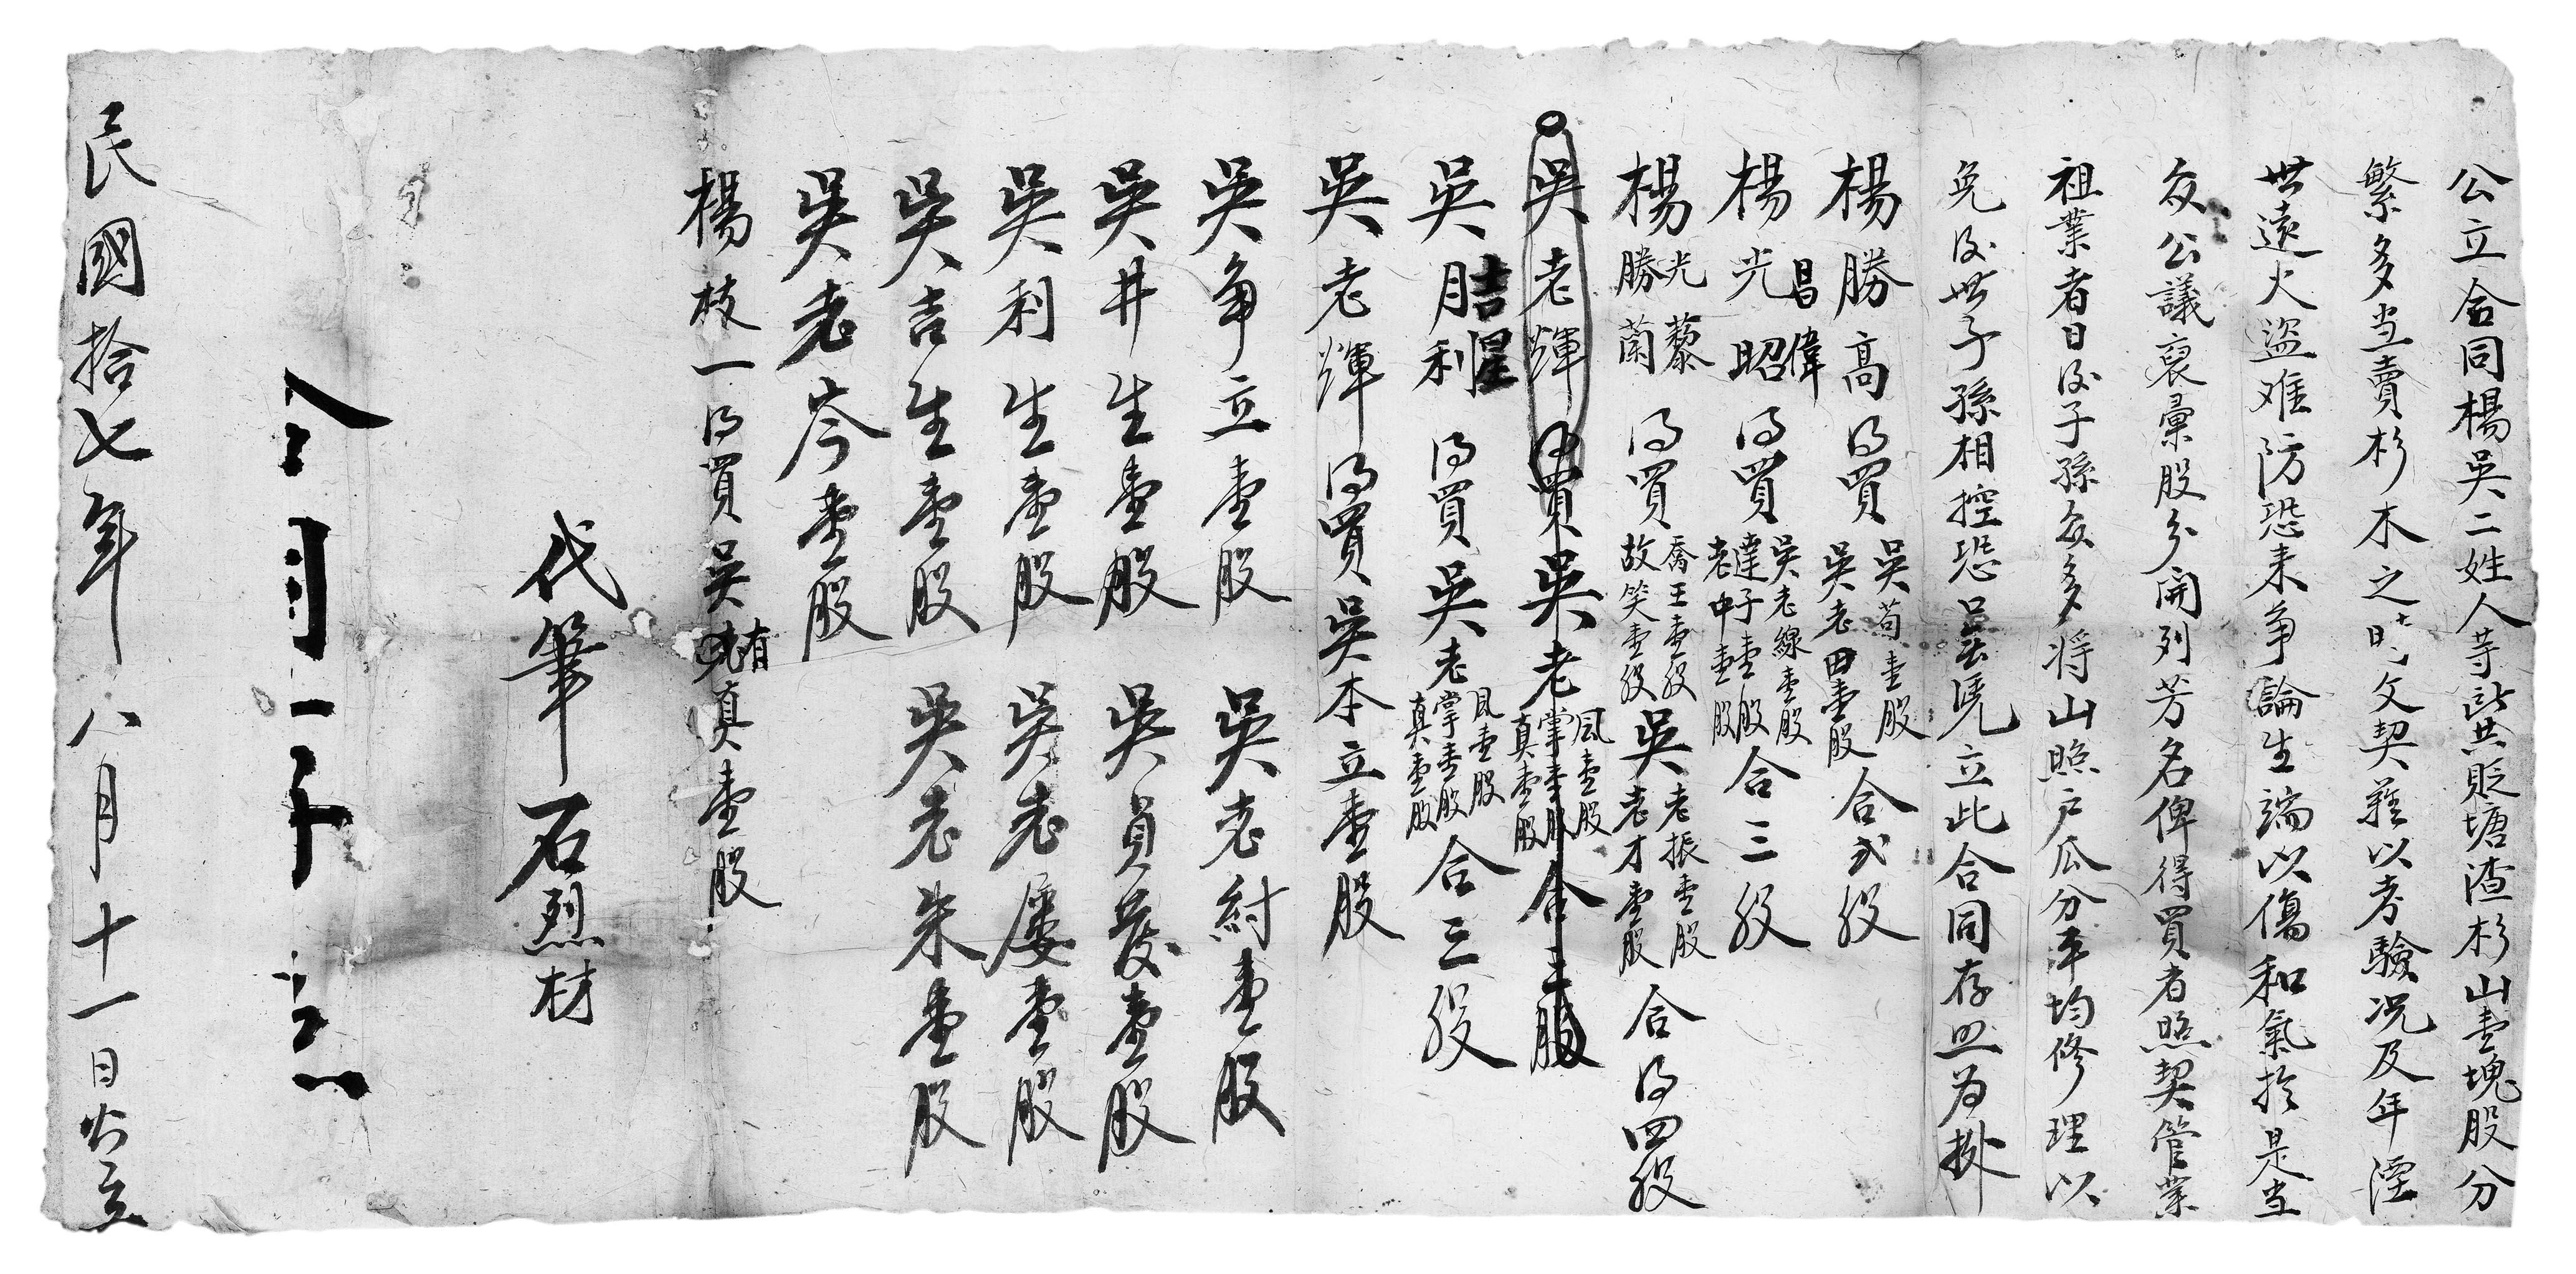 公立合同楊吳二姓人等此共貶塘渣杉山壹塊股分
繁多当賣杉木之時文契難以考驗况及年湮
世遠火盜难防恐来争論生端以傷和氣扵是当
众公議裒彙股分開列芳名俾得買者照契管業
祖業者日后子孫众多将山照户瓜分平均修理以
免后世子孫相控恐口無凴立此合同存照为㨿
楊勝高 得買 吳苟壹股 吳老田壹股 合弍股
楊光 昌偉 昭 得買 吳老線壹股 達子壹股 老中壹股 合三股
楊 光藜 勝蘭 得買 喬王壹股 故笑壹股 吳 老振壹股 老才壹股 合得四股
吳老輝得買吳老 風壹股 掌壹股 真壹股 合三股
吳 吉星 月利 得買吳老 風壹股 掌壹股 真壹股 合三股
吳老輝得買吳本立壹股
吳争立壹股 吳老紂壹股
吳井生壹股 吳員發壹股
吳利生壹股 吳老屢壹股
吳吉生壹股 吳老朱壹股
吳老岑壹股
楊枝一得買吳有真壹股
代筆石烈材
民國拾七年八月十一日公立